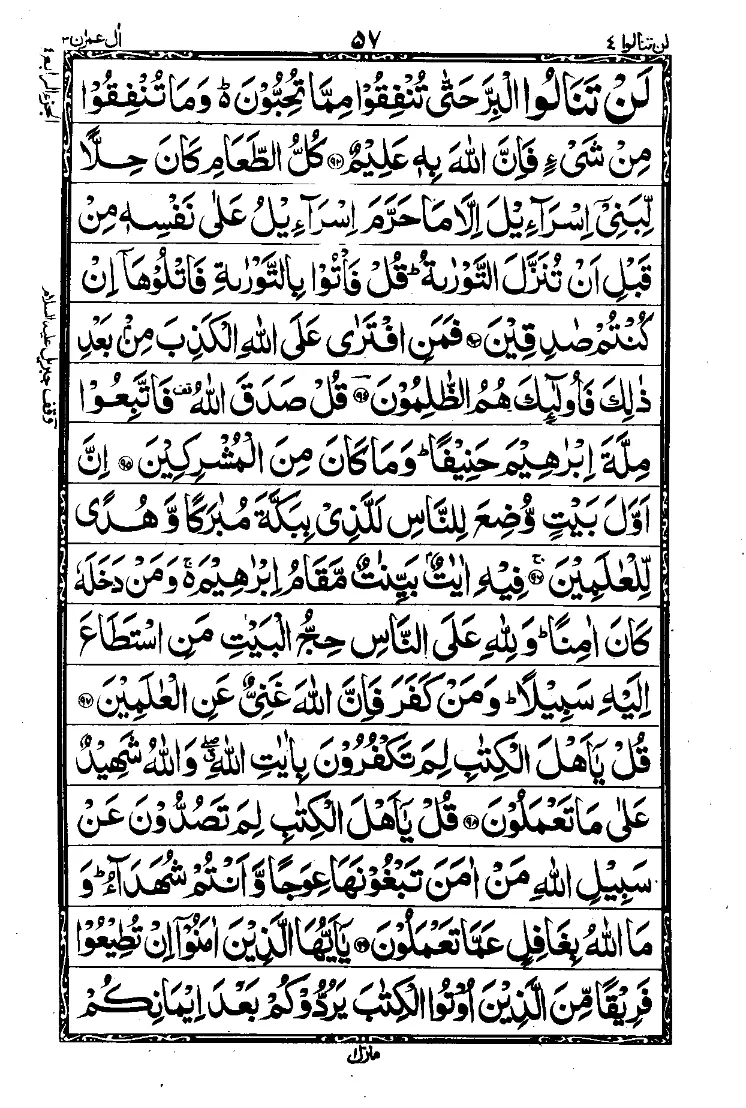 لن تنالوا ٤
٥٧
اٰل عمرٰن ٣
الجزء الرابع ٤
لَنْ تَنَالُوا الْبِرَّ حَتّٰى تُنْفِقُوْا مِمَّا تُحِبُّوْنَ ؕ۬ وَمَا تُنْفِقُوْا
مِنْ شَىْءٍ فَاِنَّ اللّٰهَ بِهٖ عَلِيْمٌ ۹۲ كُلُّ الطَّعَامِ كَانَ حِلًّا
لِّبَنِىْۤ اِسْرَآءِيْلَ اِلَّا مَا حَرَّمَ اِسْرَآءِيْلُ عَلٰى نَفْسِهٖ مِنْ
قَبْلِ اَنْ تُنَزَّلَ التَّوْرٰىةُ ؕ قُلْ فَاْتُوْا بِالتَّوْرٰىةِ فَاتْلُوْهَاۤ اِنْ
كُنْتُمْ صٰدِقِيْنَ ۹۳ فَمَنِ افْتَرٰى عَلَى اللّٰهِ الْكَذِبَ مِنْۢ بَعْدِ
ذٰلِكَ فَاُولٰٓئِكَ هُمُ الظّٰلِمُوْنَ ۹۴ قُلْ صَدَقَ اللّٰهُ قف فَاتَّبِعُوْا
مِلَّةَ اِبْرٰهِيْمَ حَنِيْفًا ؕ وَمَا كَانَ مِنَ الْمُشْرِكِيْنَ ۹۵ اِنَّ
اَوَّلَ بَيْتٍ وُّضِعَ لِلنَّاسِ لَلَّذِىْ بِبَكَّةَ مُبٰرَكًا وَّ هُدًى
لِّلْعٰلَمِيْنَ ۚ ۹۶ فِيْهِ اٰيٰتٌۢ بَيِّنٰتٌ مَّقَامُ اِبْرٰهِيْمَ ۬ۚ وَمَنْ دَخَلَهٗ
كَانَ اٰمِنًا ؕ وَلِلّٰهِ عَلَى النَّاسِ حِجُّ الْبَيْتِ مَنِ اسْتَطَاعَ
اِلَيْهِ سَبِيْلًا ؕ وَمَنْ كَفَرَ فَاِنَّ اللّٰهَ غَنِىٌّ عَنِ الْعٰلَمِيْنَ ۹۷
قُلْ يٰۤاَهْلَ الْكِتٰبِ لِمَ تَكْفُرُوْنَ بِاٰيٰتِ اللّٰهِ ۖق وَاللّٰهُ شَهِيْدٌ
عَلٰى مَا تَعْمَلُوْنَ ۹۸ قُلْ يٰۤاَهْلَ الْكِتٰبِ لِمَ تَصُدُّوْنَ عَنْ
سَبِيْلِ اللّٰهِ مَنْ اٰمَنَ تَبْغُوْنَهَا عِوَجًا وَّاَنْتُمْ شُهَدَآءُ ؕ وَ
مَا اللّٰهُ بِغَافِلٍ عَمَّا تَعْمَلُوْنَ ۹۹ يٰۤاَيُّهَا الَّذِيْنَ اٰمَنُوْۤا اِنْ تُطِيْعُوْا
فَرِيْقًا مِّنَ الَّذِيْنَ اُوْتُوا الْكِتٰبَ يَرُدُّوْكُمْ بَعْدَ اِيْمَانِكُمْ
وقف جبريل عليه السلام
منزل